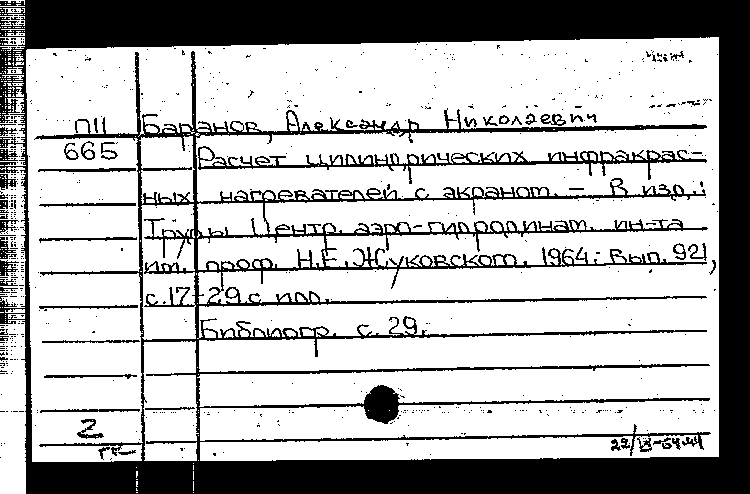 П11 Баранов, Александр Николаевич
665 Расчет цилиндрических инфракрас-
ных нагревателей с экраном. – В изд.:
Труды Центр. аэро-гидродинам. ин-та
им. проф. Н.Е. Жуковского. 1964: Вып. 921,
с. 17-29 с илл.
Библиогр. с. 29.
2